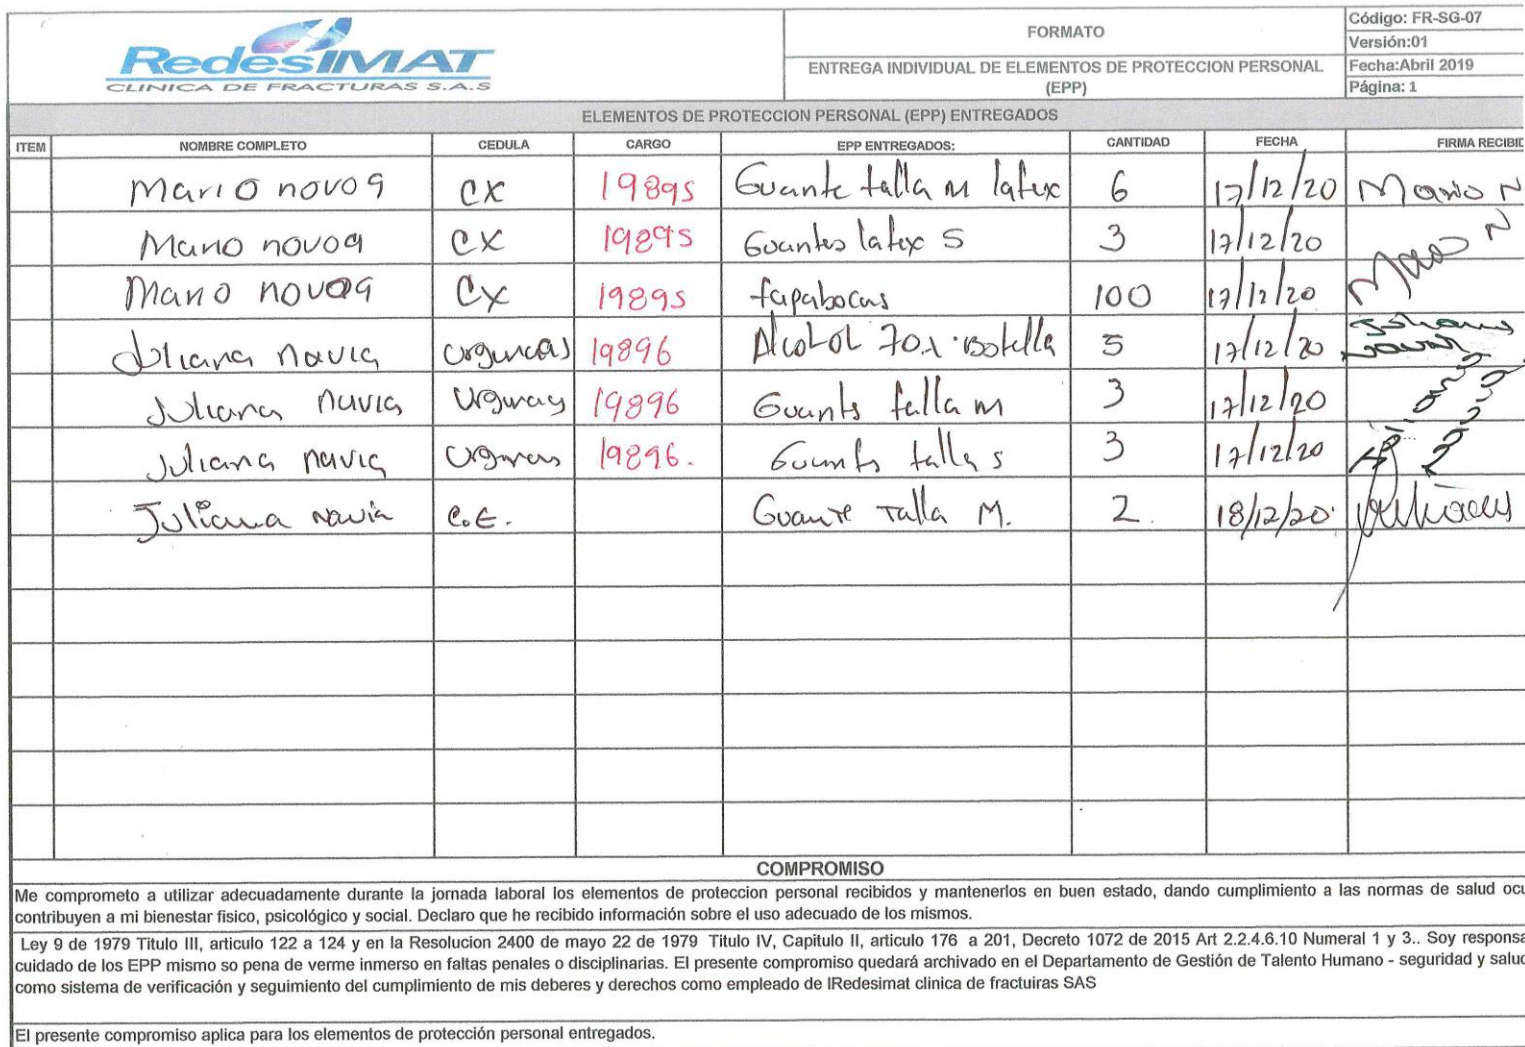 RedesIMAT
CLINICA DE FRACTURAS S.A.S
FORMATO
ENTREGA INDIVIDUAL DE ELEMENTOS DE PROTECCION PERSONAL
(EPP)
Código: FR-SG-07
Versión:01
Fecha:Abril 2019
Página: 1
ELEMENTOS DE PROTECCION PERSONAL (EPP) ENTREGADOS
ITEM NOMBRE COMPLETO CEDULA CARGO EPP ENTREGADOS: CANTIDAD FECHA FIRMA RECIBID
Mario novoa CX 19895 Guante talla M latex 6 17/12/20 Mario N
Mario novoa CX 19895 Guantes latex S 3 17/12/20 Mario N
Mario novoa CX 19895 tapabocas 100 17/12/20
Juliana navia urgencias 19896 Alcohol 70% Botella 5 17/12/20 Juliana
Juliana navia Urgencias 19896 Guante talla M 3 17/12/20
Juliana navia Urgencias 19896. Guante talla s 3 17/12/20
Juliana Navia C.E. Guante Talla M. 2. 18/12/20
COMPROMISO
Me comprometo a utilizar adecuadamente durante la jornada laboral los elementos de proteccion personal recibidos y mantenerlos en buen estado, dando cumplimiento a las normas de salud ocu
contribuyen a mi bienestar fisico, psicológico y social. Declaro que he recibido información sobre el uso adecuado de los mismos.
Ley 9 de 1979 Titulo III, articulo 122 a 124 y en la Resolucion 2400 de mayo 22 de 1979 Titulo IV, Capitulo II, articulo 176 a 201, Decreto 1072 de 2015 Art 2.2.4.6.10 Numeral 1 y 3.. Soy responsa
cuidado de los EPP mismo so pena de verme inmerso en faltas penales o disciplinarias. El presente compromiso quedará archivado en el Departamento de Gestión de Talento Humano - seguridad y salud
como sistema de verificación y seguimiento del cumplimiento de mis deberes y derechos como empleado de IRedesimat clinica de fractuiras SAS
El presente compromiso aplica para los elementos de protección personal entregados.